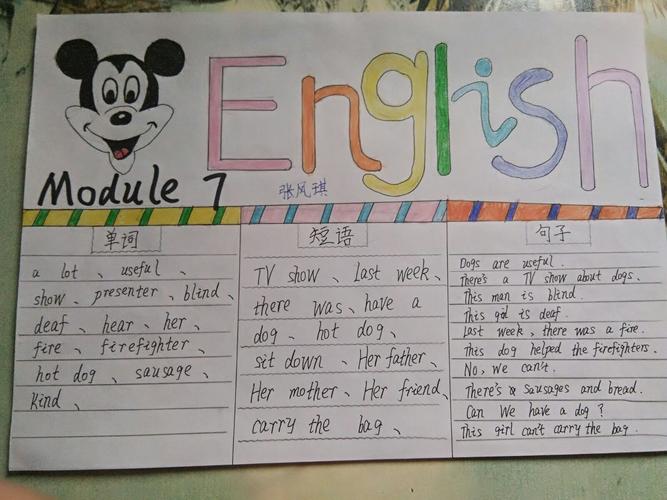 English
Module 7
张凤琪
单词
a lot、useful、
show、presenter、blind、
deaf、hear、her、
fire、firefighter、
hot dog、sausage、
kind、
短语
TV show、Last week、
there was、have a
dog、hot dog、
sit down、Her father、
Her mother、Her friend、
carry the bag、
句子
Dogs are useful.
There's a TV show about dogs.
This man is blind.
This girl is deaf.
Last week, there was a fire.
This dog helped the firefighters.
No, we can't.
There's sausages and bread.
Can We have a dog?
This girl can't carry the bag.